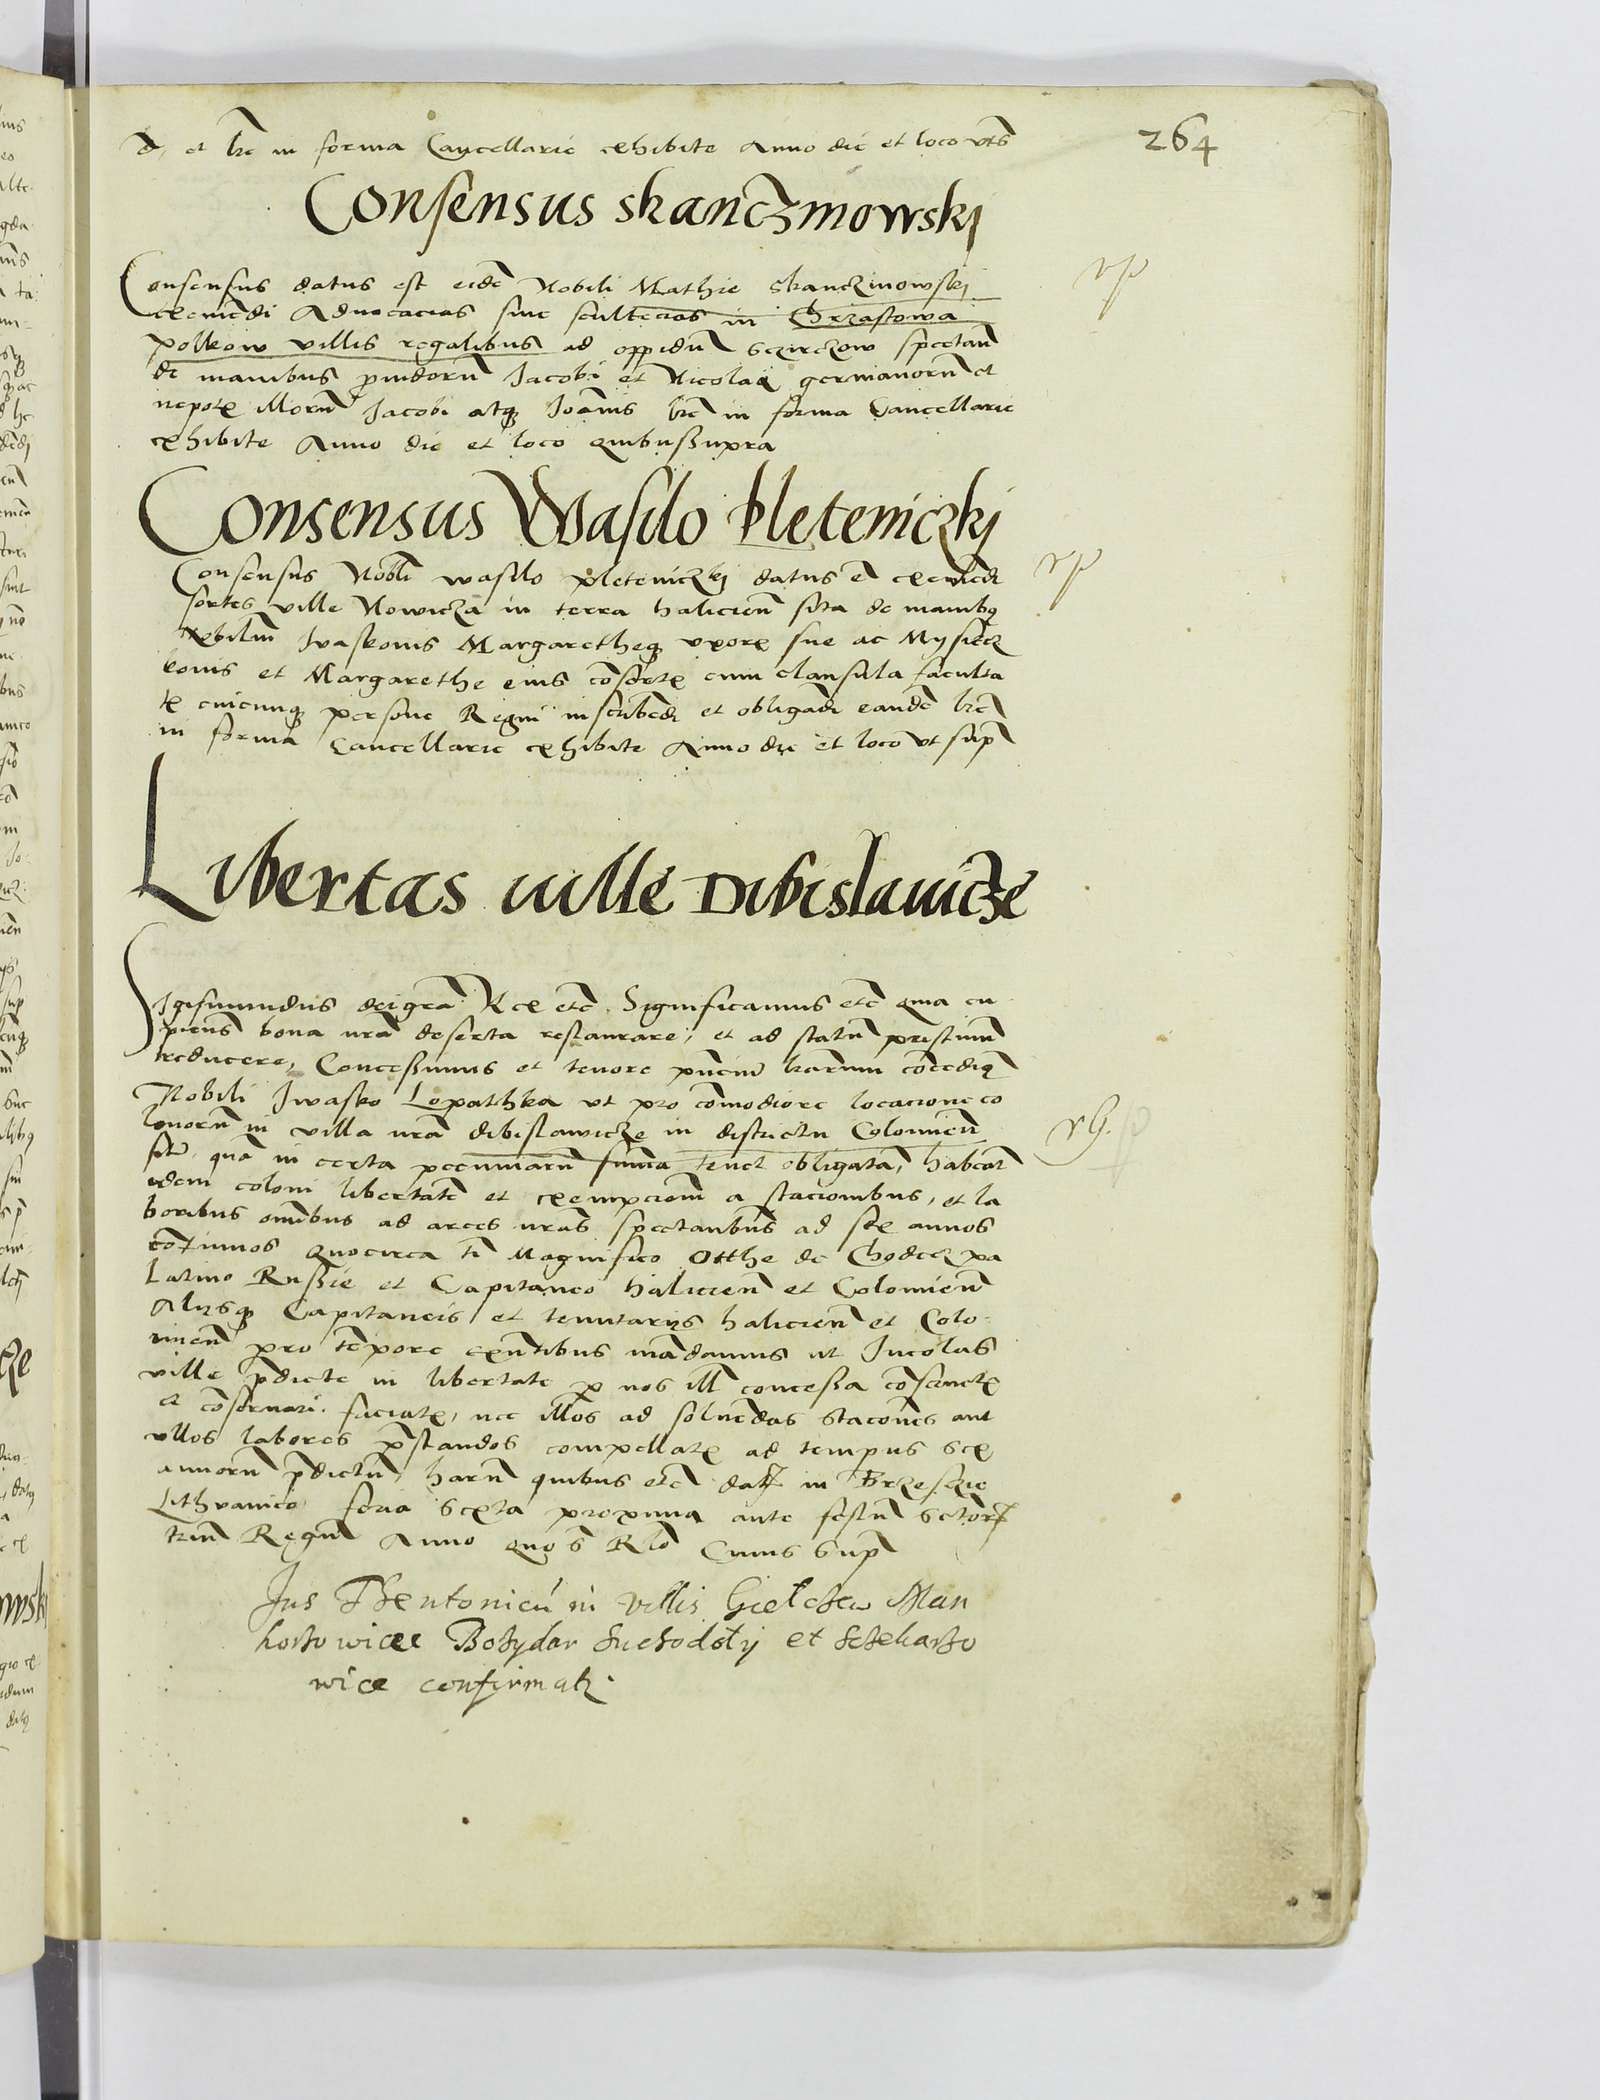 et lre in forma Cancellarie exhibite Anno die et loco vts
264
Consensus skanczmowskj
Consensus datus est eidē Nobili Mathie skanczmowskj
exemēdi Aduocacias siue scultecias in Chrzastowa
polkow villis regalibus ad oppidū sczirczow spectan̄
de manibus ꝓuidorū Jacobi et Nicolai germanorū et
nepotū illorū Jacobi atqꝫ Joānis lre in forma Cancellarie
exhibite Anno die et loco quibussupra
rp
Consensus Wasilo Pleteniczkj
Consensus Nobli wasilo pleteniczkj datus ē exemēdi
sortes ville Nowicza in terra halicien̄ sita de manibꝫ
Nobiliū Jvaskonis Margaretheqꝫ vxoris sue ac
konis et Margarethe eius cōsortis cum clausula faculta
tis cuicunqꝫ persone Regni inscribēdi et obligādi eandē lre
in forma Cancellarie exhibite Anno die et loco vt sup̄
rp
Libertas uille Dibislauicze
Sigismundus dei gra Rex etc̄ Significamus etc̄ quia cu
pien̄s bona nrā deserta restaurare, et ad statū pristinū
reducere, Concessimus et tenore pn̄ciū lrarum cōcediꝰ
Nobili Jwasko Lopathka vt pro cōmodiore locacione co
lonorū in villa nrā dibislawicze in districtu Colomien̄
sit̄ quā in certa pecuniarū sum̄a tenet obligatā, habeāt
idem coloni libertatē et exempcionē a stacionibus, et la
boribus om̄ibus ad arces nrās spectantibus ad sex annos
cōtinuos quocirca ti Magnifico Otthe de Chodecz pa
latino Russie et Capitaneo halicien̄ et Colomien̄
Alijsqꝫ Capitaneis et tenutarijs halicien̄ et Colo
mien̄ pro tēpore exn̄tibus mādamus ut Incolas
ville p̄dicte in libertate ꝑ nos ill concessa cōseruetis
et cōseruari faciatis, nec illos ad soluēdas staciones aut
vllos labores p̄standos compellatis ad tempus sex
annorū p̄dictū, harū quibus etc̄ dat in Brzesczie
Lithuanico feria sexta proxima ante festū sctor
triū Regū Anno quo s Rlo Cuius sup̄
Jus Thentonicū in villis Gielczew Man
kostowice Bozydar Suchodoly et Sczekarzo
wice confirmatr.